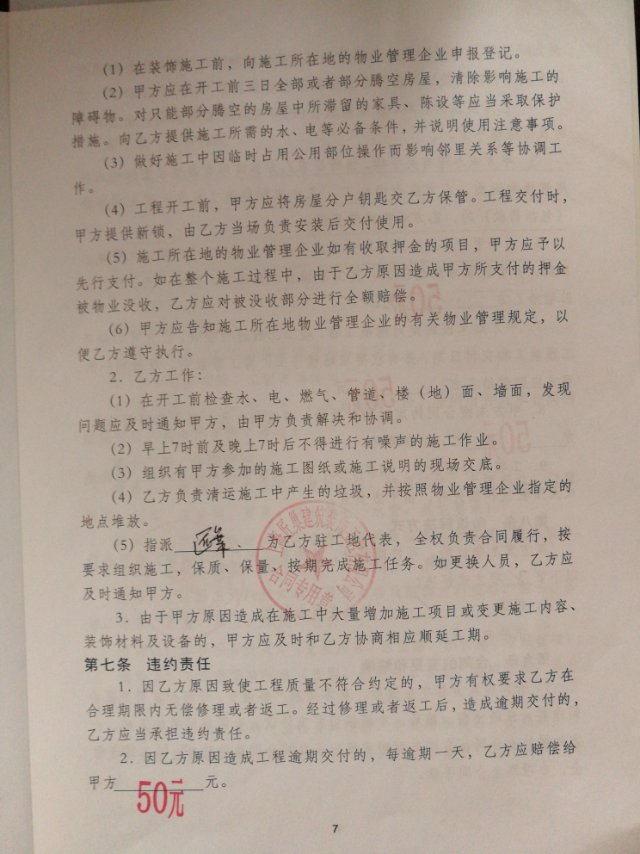 (1) 在装饰施工前，向施工所在地的物业管理企业申报登记。
(2) 甲方应在开工前三日全部或者部分腾空房屋，清除影响施工的
障碍物。对只能部分腾空的房屋中所滞留的家具、陈设等应当采取保护
措施。向乙方提供施工所需的水、电等必备条件，并说明使用注意事项。
(3) 做好施工中因临时占用公用部位操作而影响邻里关系等协调工
作。
(4) 工程开工前，甲方应将房屋分户钥匙交乙方保管。工程交付时，
甲方提供新锁，由乙方当场负责安装后交付使用。
(5) 施工所在地的物业管理企业如有收取押金的项目，甲方应予以
先行支付。如在整个施工过程中，由于乙方原因造成甲方所支付的押金
被物业没收，乙方应对被没收部分进行全额赔偿。
(6) 甲方应告知施工所在地物业管理企业的有关物业管理规定，以
便乙方遵守执行。
2．乙方工作：
(1) 在开工前检查水、电、燃气、管道、楼（地）面、墙面，发现
问题应及时通知甲方，由甲方负责解决和协调。
(2) 早上7时前及晚上7时后不得进行有噪声的施工作业。
(3) 组织有甲方参加的施工图纸或施工说明的现场交底。
(4) 乙方负责清运施工中产生的垃圾，并按照物业管理企业指定的
地点堆放。
(5) 指派 为乙方驻工地代表，全权负责合同履行，按
要求组织施工，保质、保量、按期完成施工任务。如更换人员，乙方应
及时通知甲方。
合同专用章
3．由于甲方原因造成在施工中大量增加施工项目或变更施工内容、
装饰材料及设备的，甲方应及时和乙方协商相应顺延工期。
第七条 违约责任
1．因乙方原因致使工程质量不符合约定的，甲方有权要求乙方在
合理期限内无偿修理或者返工。经过修理或者返工后，造成逾期交付的，
乙方应当承担违约责任。
2．因乙方原因造成工程逾期交付的，每逾期一天，乙方应赔偿给
甲方 元。
50元
7